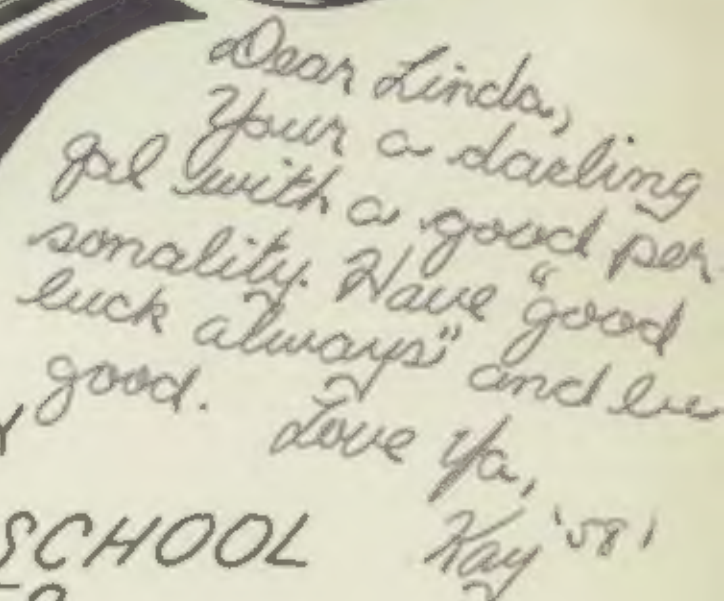 Dear Linda,
Your a darling
gal with a good per-
sonality. Have "good
luck always" and be
good.
Love Ya,
Kay '58'
SCHOOL